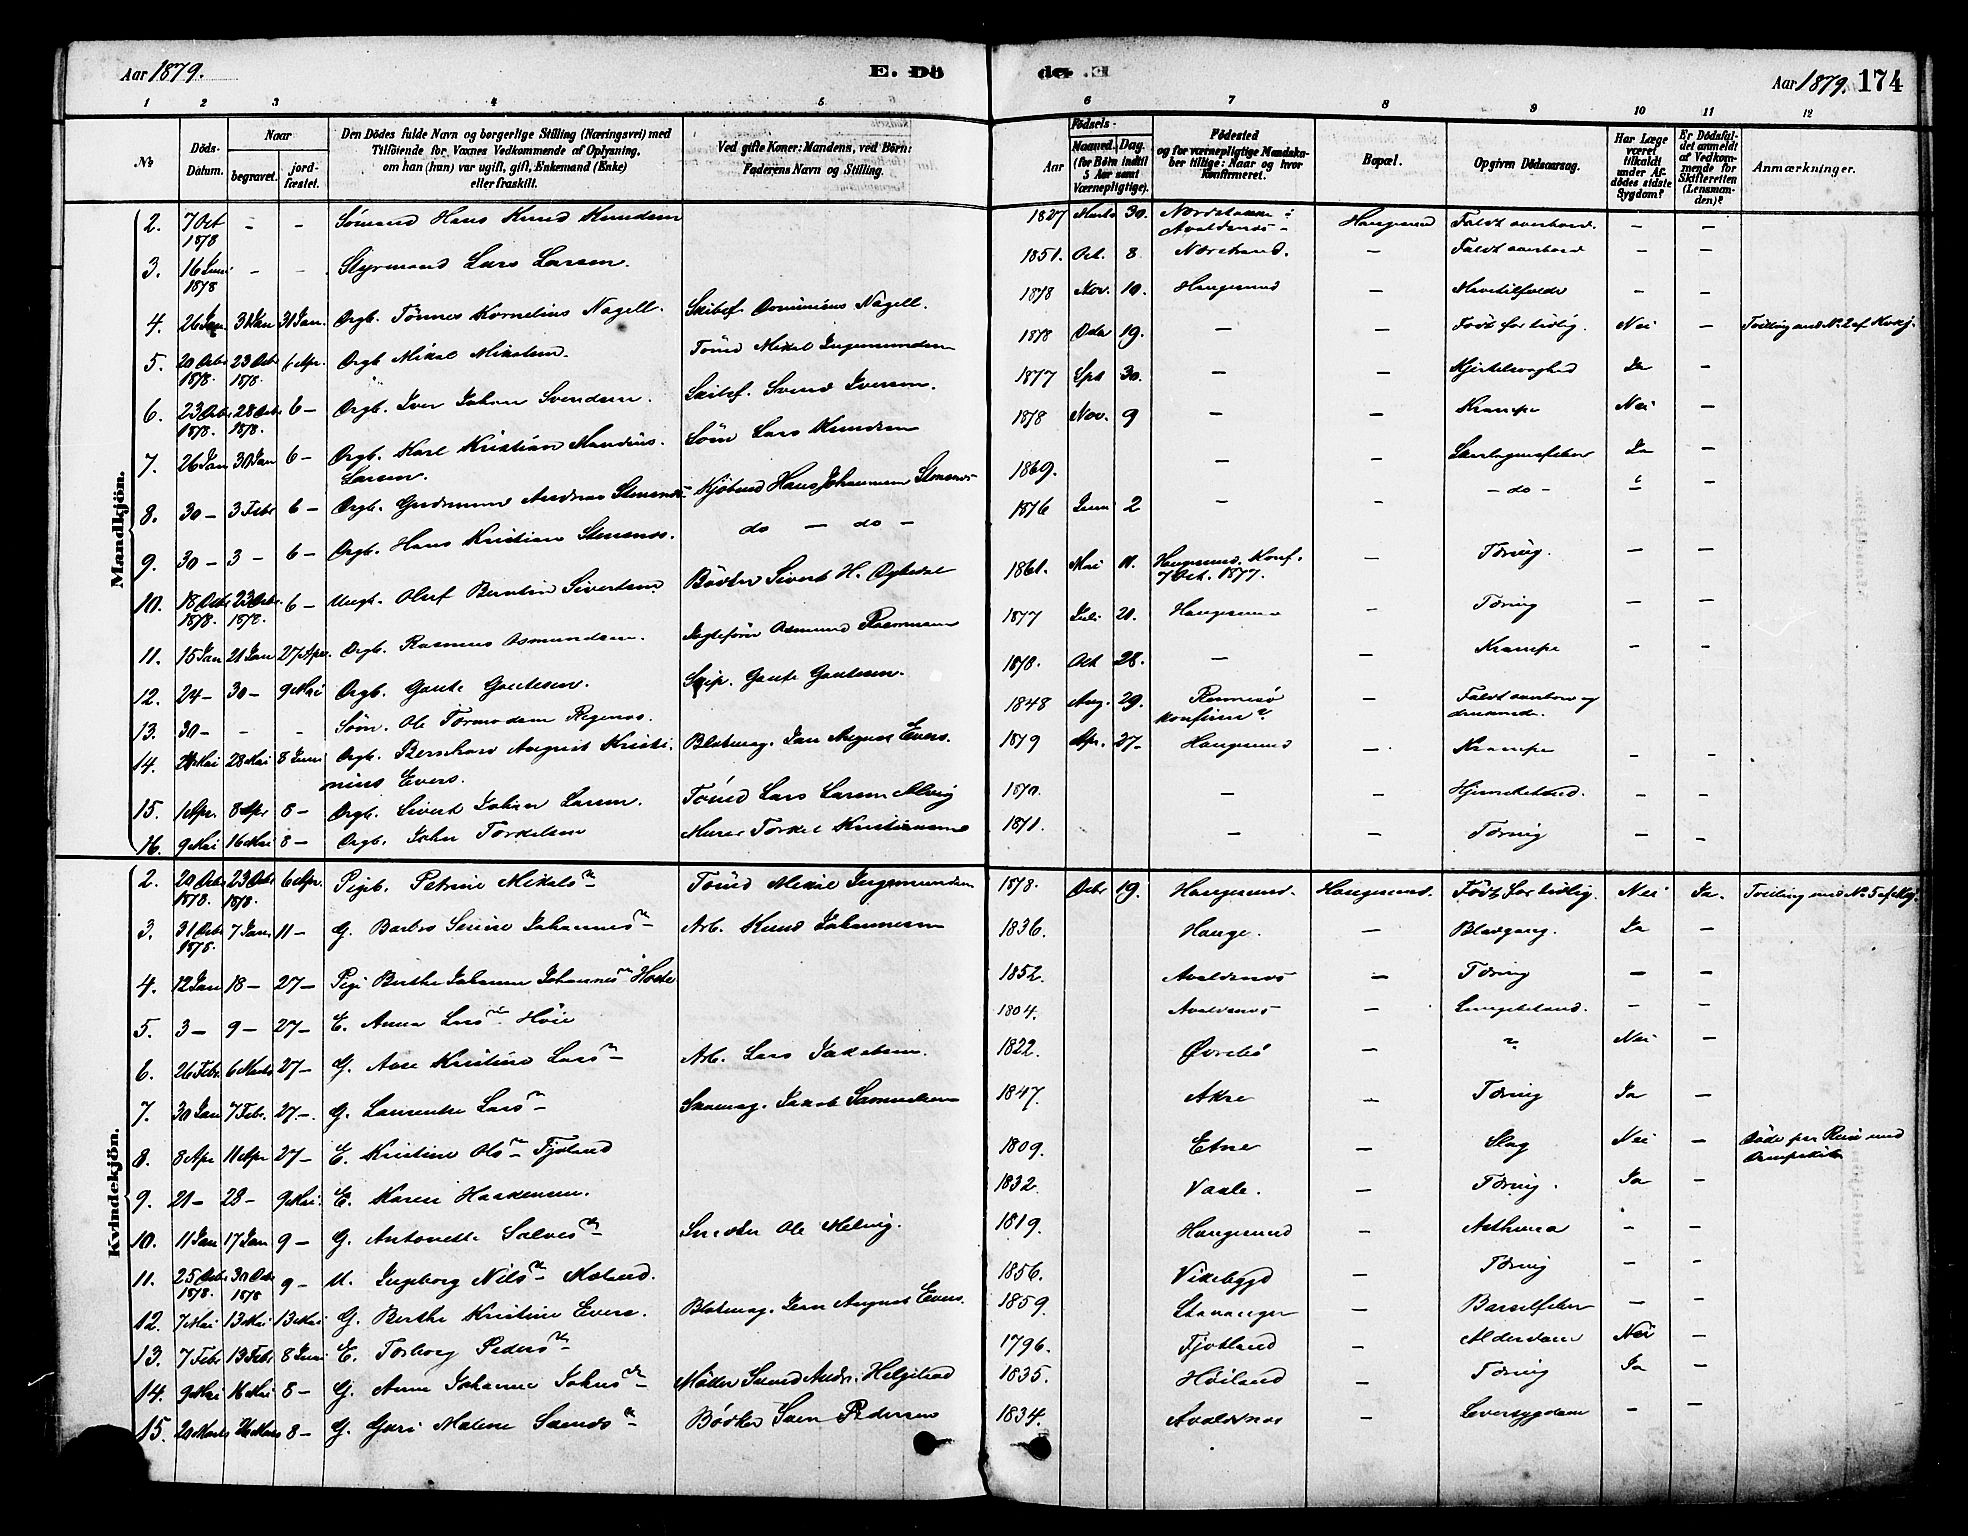 Aar 1879.
E. Dö
de. E
Aar 1879. 174
1 2 3 4 5 6 7 8 9 10 11 12
No
Döds-Datum.
Naar
begravet.
jordfæstet.
Den Dödes fulde Navn og borgerlige Stilling (Næringsvei) med
Tilföiende for Voxnes Vedkommende af Oplysning,
om han (hun) var ugift, gift, Enkemand (Enke)
eller fraskilt.
Ved gifte Koner: Mandens, ved Börn:
Faderens Navn og Stilling.
Födsels-
Aar
Maaned. Dag.
(for Börn indtil
5 Aar samt
Værnepligtige).
Födested
og for værnepligtige Mandskaber tillige: Naar og hvor
konfirmeret.
Bopæl.
Opgiven Dödsaarsag.
Har Læge
været
tilkaldt
under Afdödes sidste
Sygdom?
Er Dödsfaldet anmeldt
af Vedkommende for
Skifteretten
(Lensmanden)?
Anmærkninger.
Mandkjön.
2. 7 Oct 1878 - - Sömand Hans Knud Knudsen 1827 Marts 30. Avaldsnes - Haugesund Faldt overbord. - -
3. 16 Juni 1878 - - Styrmand Lars Larsen. 1851. Oct. 8 Nærstrand. - Faldt overbord - -
4. 26 Jan 31 Jan 31 Jan. Drgb. Tönnes Kornelius Nagell. Skibsf. Nagell. 1878 Nov. 10. Haugesund - - -
5. 20 Octbr 1878. 23 Octbr 1878. 6 Apr. Drgb Mikal Mikalsen. Tömd Mikal Ingemundsen 1878 Octbr 19. - - Födt for tidlig. Nei - Tvilling med No 2 af Kvkj.
6. 23 Octbr 1878. 28 Octbr 1878. 6 - Drgb. Iver Johan Svendsen. Skibsf. Svend Iversen. 1877 Spt 30. - - Hjertesvaghed Ja -
7. 26 Jan 30 Jan 6 - Drgb. Karl Kristian Mandius. Larsen. Söm Lars Knudsen 1878 Nov. 9 - - Krampe Nei -
8. 30 - 3 Febr 6 - Drgb. Gudmund Andreas Stensnes. Kjöbmd Hans Johannesen Stensnes 1869. - - Skarlagensfeber Ja -
9. 30 - 3 - 6 - Drgb. Hans Kristian Stensnes. do - do - 1876 Juni 2 - - - do - -
10. 18 Octbr 1878. 23 Octbr 1878. 6 - Ungk. Oluf Berntin Sivertsen. Bödker Sivert H. 1861. Mai 11. Haugesund. Konf. 7 Oct. 1877. - Tæring. - -
11. 15 Jan 21 Jan 27 Apr. Drgb. Rasmus Osmundsen. Jagtförer Osmund Rasmussen 1877 Juli 21. Haugesund - Tæring - -
12. 24 - 30 - 9 Mai Drgb. Gaute Gautesen. Skip. Gaute Gautesen. 1878. Oct 28. - Krampe - -
13. 30 - - - Söm. Ole Tormodsen 1848 Aug. 29. Rennesö konfirm? - Faldt overbord og druknede. - -
14. 24 Mai 28 Mai 8 Juni Drgb. Bernhard August Kristinius Evers. Blokmag. Jan August Evers. 1879 Apr. 27 - Haugesund - Krampe - -
15. 1 Apr. 8 Apr 8 - Drgb. Sivert Johan Larsen. Tömd Lars Larsen 1870. - - - -
16. 9 Mai 16 Mai 8 - Drgb. John Torkelsen Murer Torkel Kristiansen 1871. - - Tæring - -
Kvindekjön.
2. 20 Octbr 1878. 23 Octbr 1878. 6 Apr. Pigb. Petrine Mikalsn Tömd Mikal Ingemundsen 1878. Octbr 19. Haugesund. Haugesund. Födt for tidlig. Nei Ja. Tvilling med No 5 af Mkj.
3. 31 Octbr 1878. 7 Jan. 11 - G. Barbro Serine Johannesn Arb. Knud Johannesen 1836. Hauge. - Blodgang. Ja -
4. 12 Jan 18 - 27 - Pige Berthe Johanne Johannesn 1852. Avaldsnes - Tæring - -
5. 3 - 9 - 27 - E. Anna Larsn Höie 1804. Avaldsnes - - -
6. 26 Febr. 6 Marts 27 - G. Ane Kristine Larsn Arb. Lars Jakobsen. 1822. Øvrebö - ? Nei -
7. 30 Jan 7 Febr. 27 - G. Laurentse Larsn Skomag. Jakob Samuelsen 1847. Akre - Tæring Ja -
8. 8 Apr 11 Apr 27 - E. Kristine Olsn Fjotland 1809. Etne - Slag Nei - Döde paa Reise med Dampskib
9. 21 - 28 - 9 Mai. E. Karen Haakensen. 1832. Vaale. - Tæring. Ja -
10. 11 Jan 17 Jan 9 - G. Antonette Salvesn Snedker Ole Melvig. 1819. Haugesund - Asthma - -
11. 25 Octbr 1878. 30 Octbr 1878 9 - U. Ingeborg Nilsn 1856. Vikebygd - Tæring - -
12. 7 Mai 13 Mai 13 Mai G. Berthe Kristine Evers. Blokmag. Jan August Evers. 1859. Stavanger - Barselfeber - -
13. 7 Febr 13 Febr 8 Juni E. Torborg Pedersn 1796. Fjotland - Alderdom Nei -
14. 9 Mai 16 Mai 8 - G. Anne Johanne Johnsn Möller Svend Andr. Helgeland 1835. Höiland - Tæring Ja -
15. 20 Marts 26 Marts 8 - G. Guri Malene Svendsn Bödker Sven Pedersen 1834. Avaldsnes - Leversygdom - -